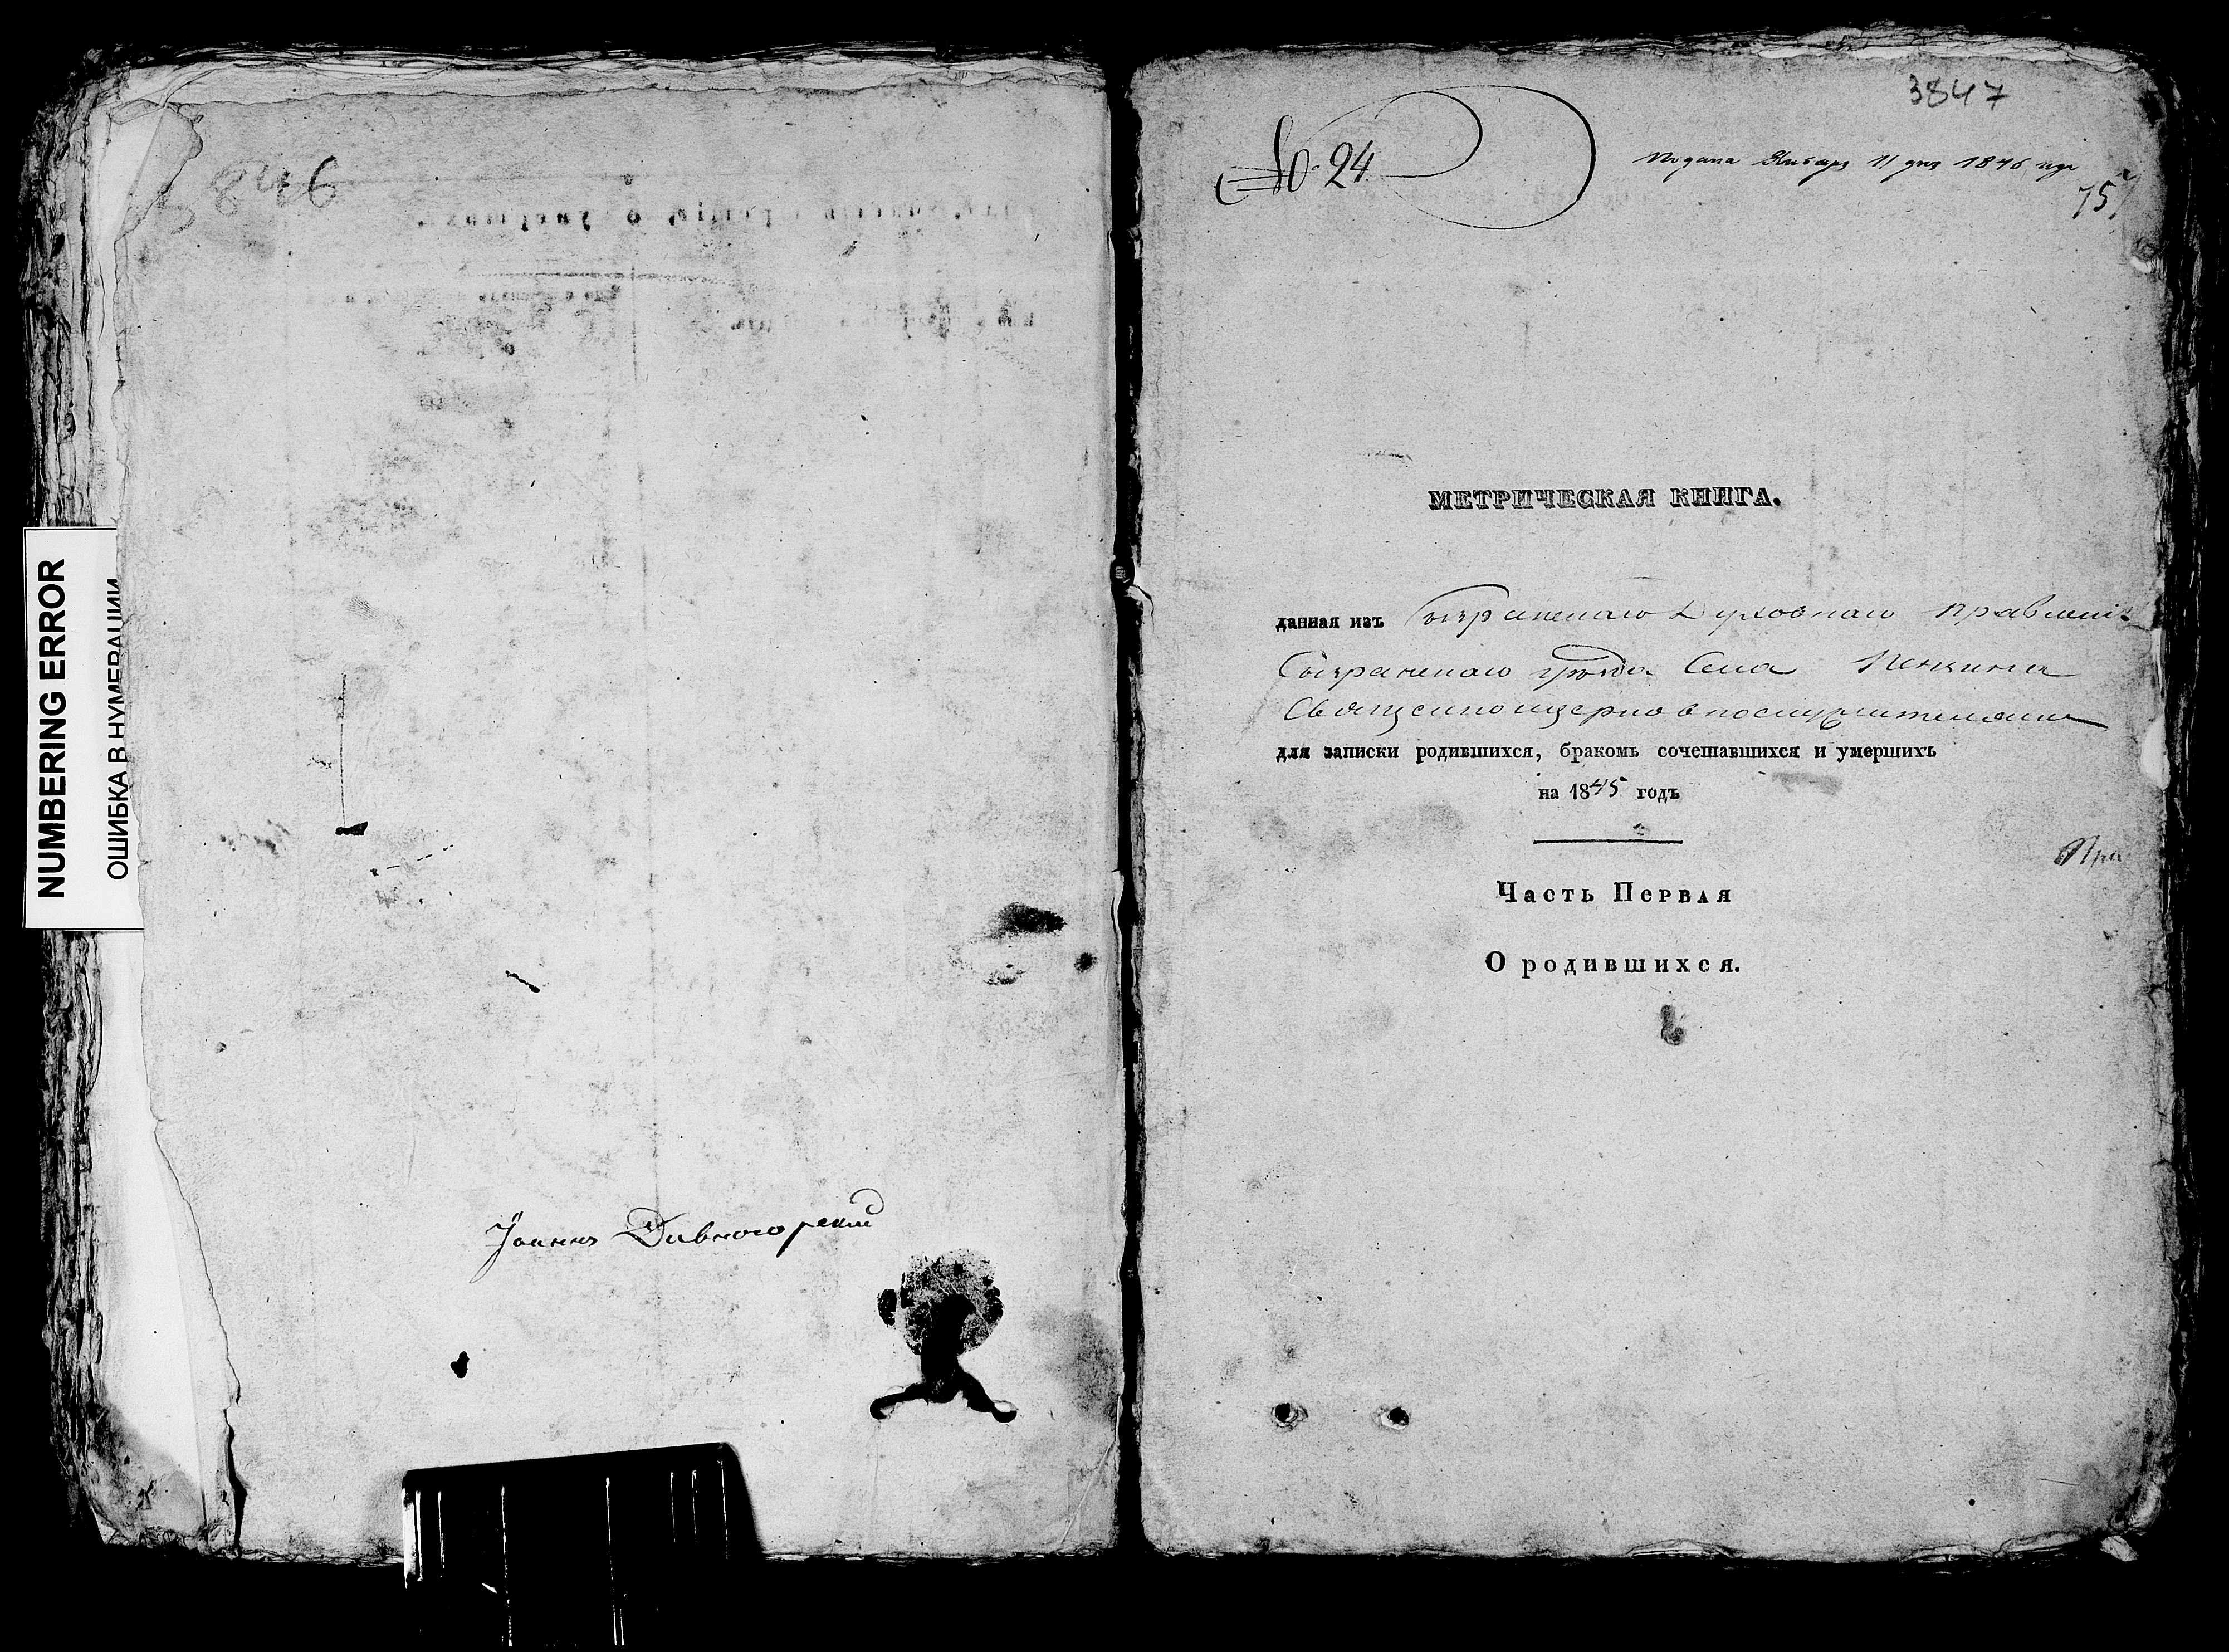 NUMBERING ERROR
ОШИБКА В НУМЕРАЦИИ
3846
Іоаннъ Дивногорскій
3847
№ 24
подана Января 11 дня 1846 года
МЕТРИЧЕСКАЯ КНИГА.
данная изъ Сызранскаго Духовнаго Правленія
Сызранскаго уѣзда Села
Священноцерковнослужителямъ
для записки родившихся, бракомъ сочетавшихся и умершихъ
на 1845 годъ
При
Часть Первая
О родившихся.